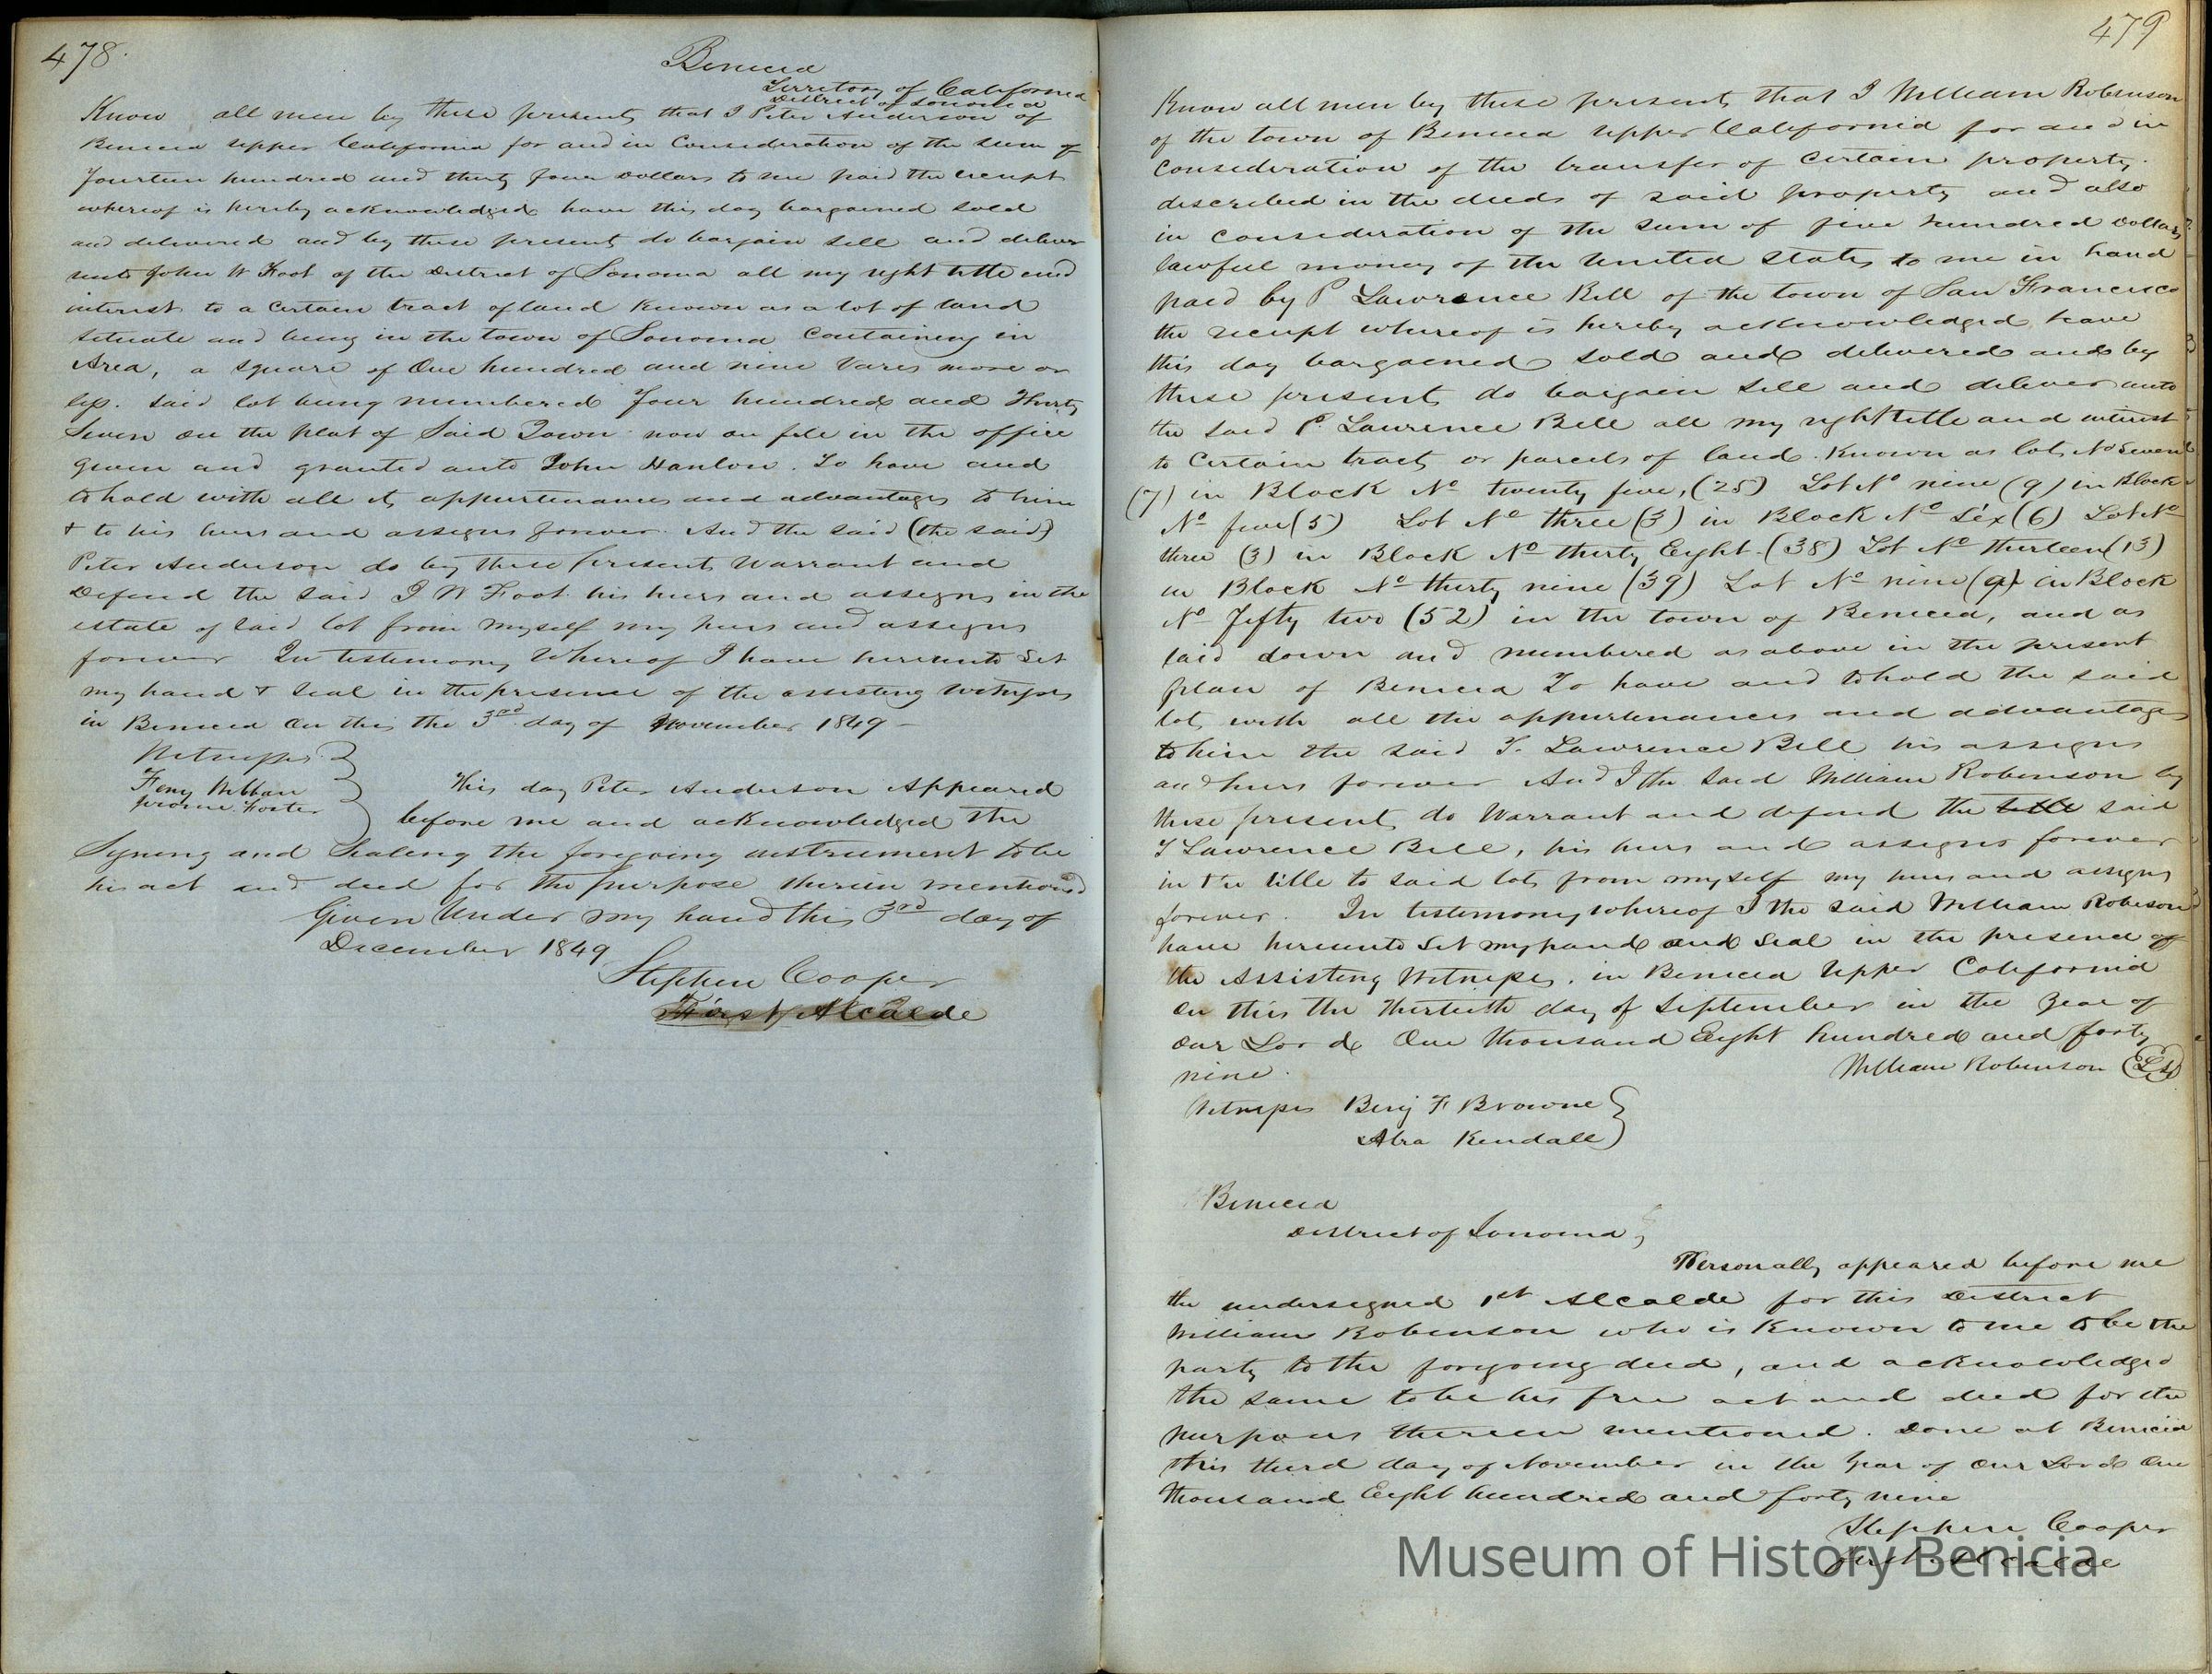 478.
Benicia
Territory of California
District of Sonoma
Know all men by these presents that I Peter Anderson of
Benicia upper California for and in Consideration of the sum of
fourteen hundred and thirty four dollars to me paid the receipt
whereof is hereby acknowledged have this day bargained sold
and delivered and by these presents do bargain sell and deliver
unto John W Foot of the District of Sonoma all my right title and
interest to a certain tract of land known as a lot of land
situate and being in the town of Sonoma containing in
Area, a square of One hundred and nine Vares more or
less. Said lot being numbered Four hundred and Thirty
Seven on the plat of Said Town now on file in the office
given and granted unto John Hanlon. To have and
to hold with all its appurtenances and advantages to him
& to his heirs and assigns forever. And the said (the said)
Peter Anderson do by these presents Warrant and
Defend the said J W Foot his heirs and assigns in the
estate of said lot from myself my heirs and assigns
forever In testimony Whereof I have hereunto Set
my hand & Seal in the presence of the assisting Witnesses
in Benicia on this the 3rd day of November 1849 -
Witnesses
This day Peter Anderson Appeared
Foster
before me and acknowledged the
Signing and Sealing the foregoing instrument to be
his act and deed for the purpose therein mentioned
Given Under my hand this 3rd day of
December 1849
Stephen Cooper
First Alcalde
479
Know all men by these presents that I William Robinson
of the town of Benicia upper California for and in
consideration of the transfer of certain property.
described in the deeds of said property and also
in consideration of the sum of five hundred Dollars
lawful money of the United States to me in hand
paid by P Lawrence Bell of the town of San Francisco
the receipt whereof is hereby acknowledged have
this day bargained sold and delivered and by
these presents do bargain sell and deliver unto
the said P. Lawrence Bell all my right title and interest
to Certain tracts or parcels of land. Known as lots No Seven
(7) in Block No twenty five, (25) Lot No nine (9) in Block
No five (5) Lot No three (3) in Block No Six (6) Lot No
three (3) in Block No thirty Eight (38) Lot No thirteen (13)
in Block No thirty nine (39) Lot No nine (9) in Block
No Fifty two (52) in the town of Benicia, and as
laid down and numbered as above in the present
plan of Benicia To have and to hold the said
lots with all the appurtenances and advantages
to him the said T. Lawrence Bell his assigns
and heirs forever And I the Said William Robinson by
these presents do Warrant and defend the title said
T Lawrence Bell, his heirs and assigns forever
in the title to said lots from myself my heirs and assigns
forever. In testimony whereof I the said William Robison
have hereunto Set my hand and Seal in the presence of
the Assisting Witnesses. in Benicia Upper California
on this the Thirtieth day of September in the Year of
our Lord One thousand Eight hundred and forty
nine.
William Robinson (LS)
Witnesses Benj F Browne
Kendall
Benicia
District of Sonoma
Personally appeared before me
the undersigned 1st Alcalde for this District
William Robinson who is Known to me to be the
party to the foregoing deed, and acknowledged
the same to be his free act and deed for the
purposes therein mentioned. Done at Benicia
this third day of November in the Year of our Lord One
thousand Eight hundred and forty nine
Stephen Cooper
first Alcalde
Museum of History Benicia